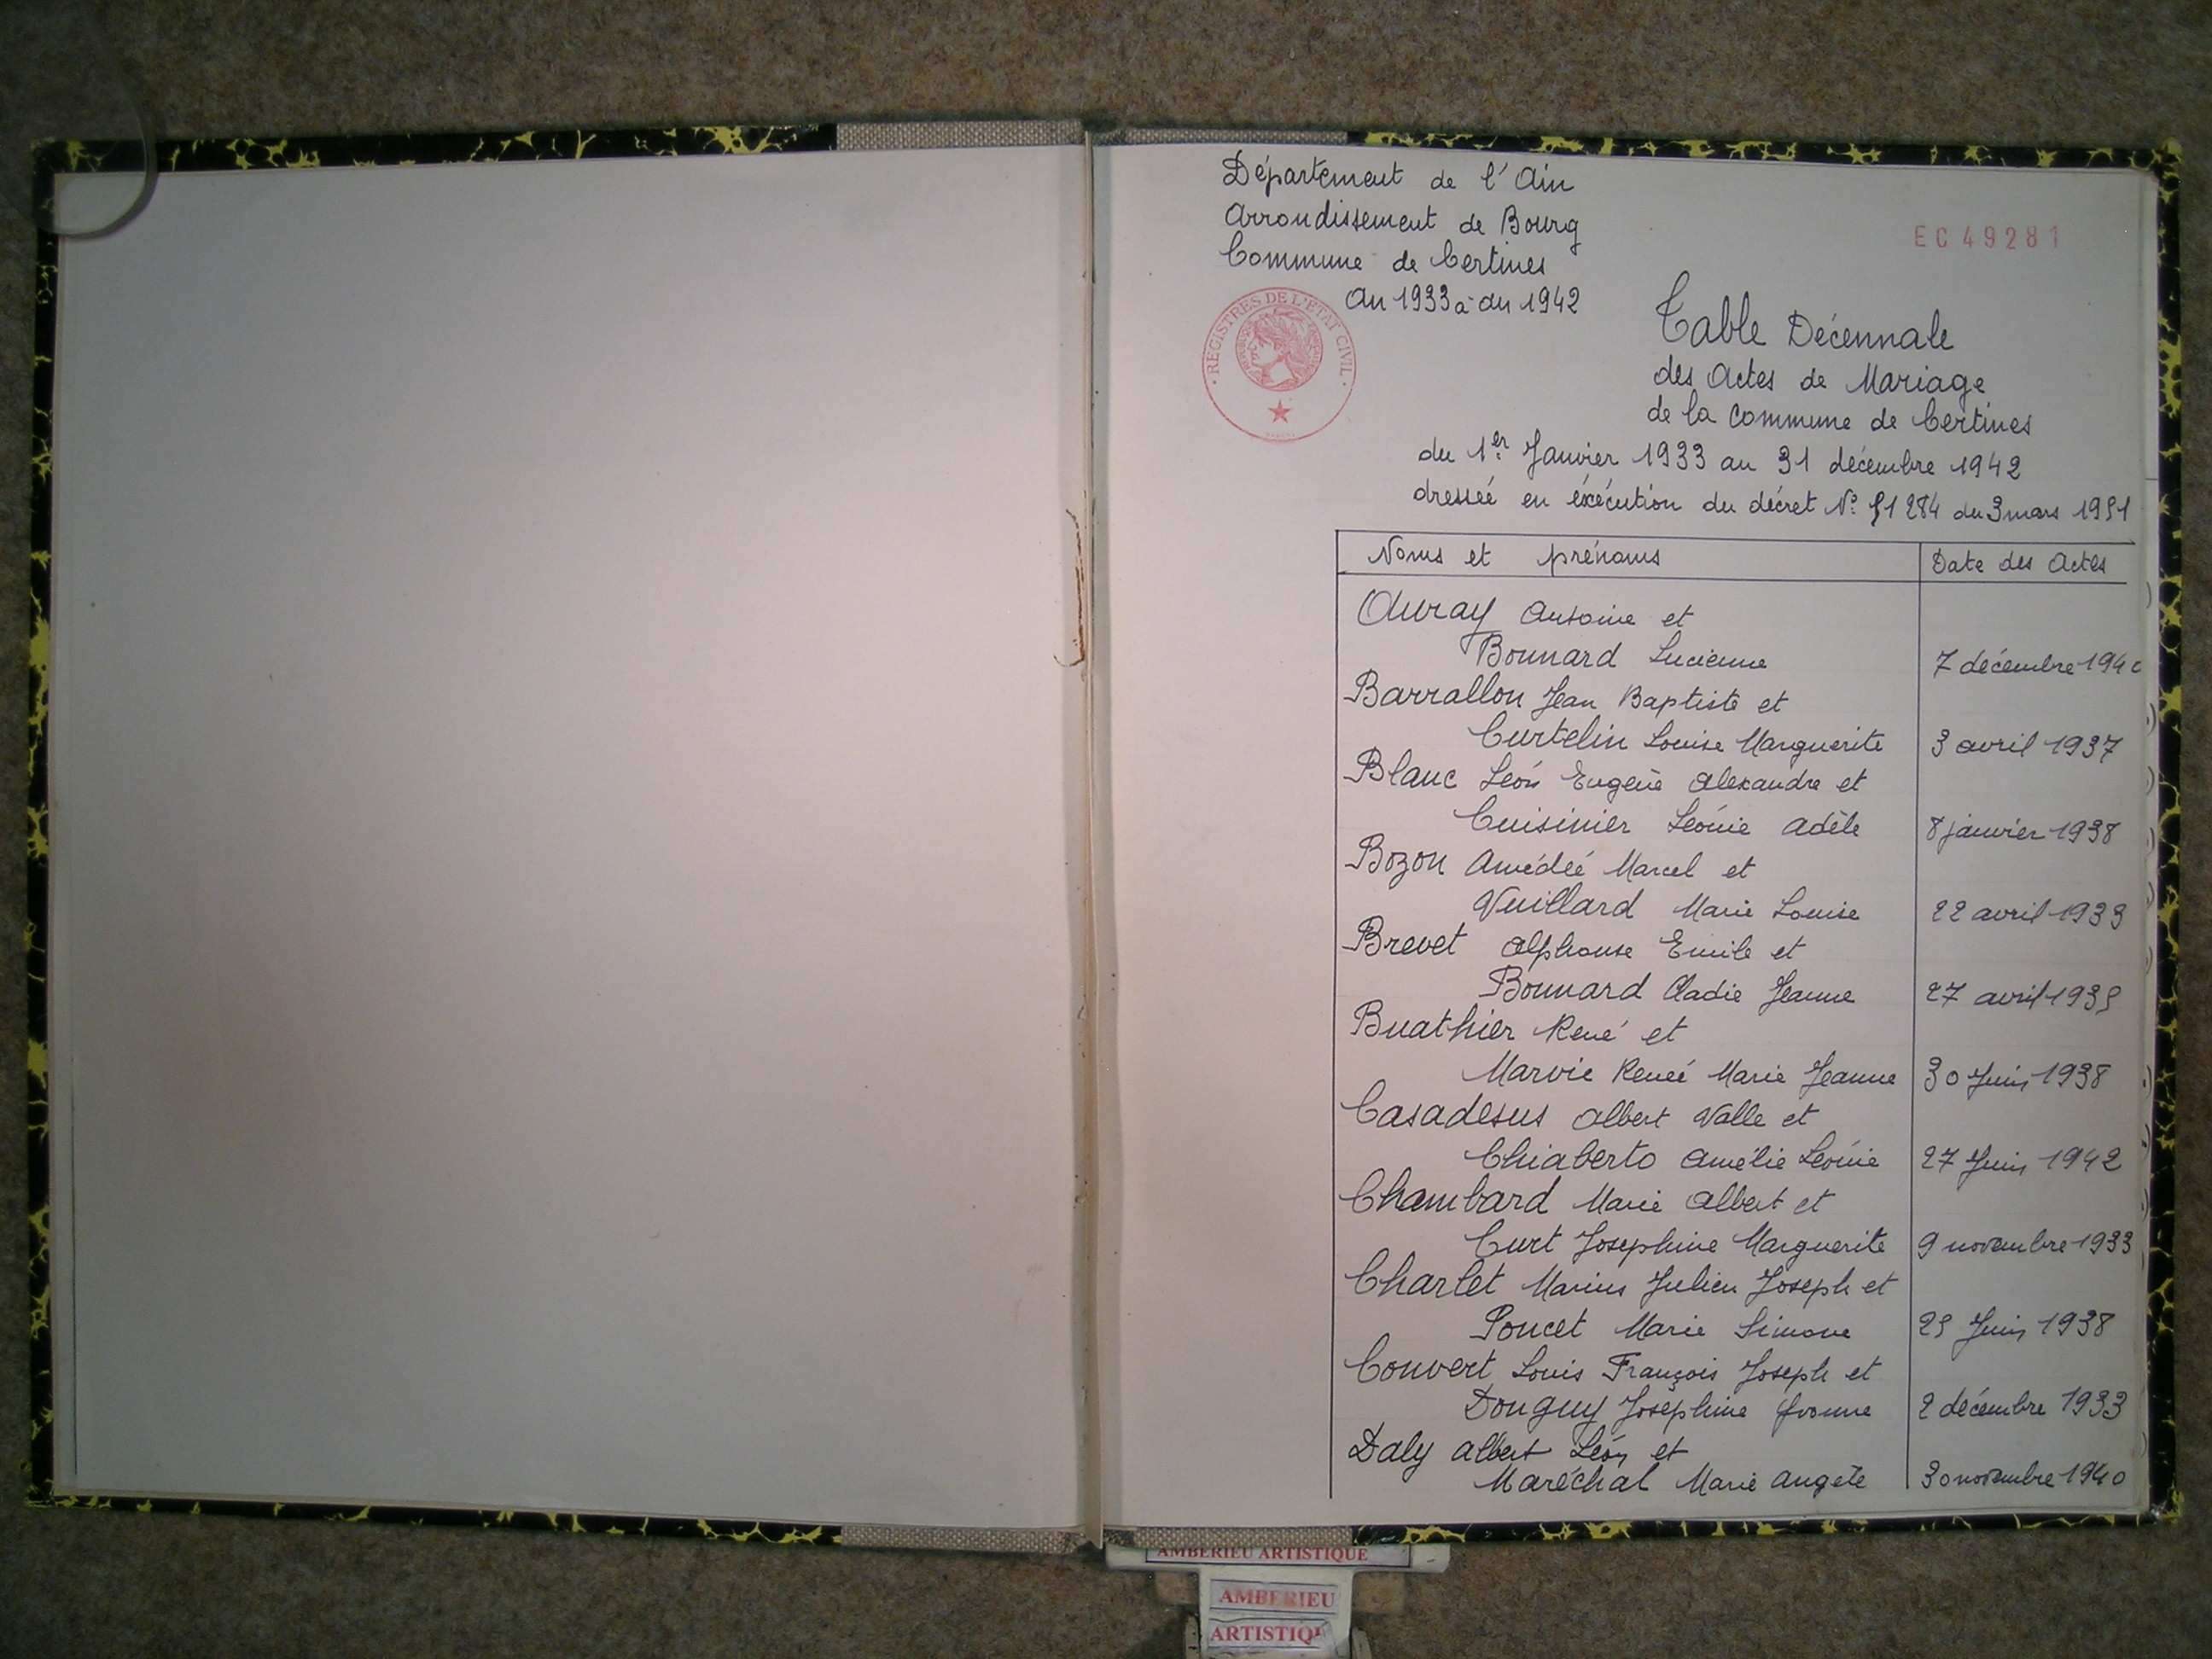 Département de l'Ain
Arrondissement de Bourg
Commune de Certines
An 1933 à an 1942
EC 49281
REGISTRES DE L'ETAT CIVIL
Table Décennale
des Actes de Mariage
de la Commune de Certines
du 1er Janvier 1933 au 31 décembre 1942
dressée en éxécution du décret No 51 284 du 3 mars 1951
Noms et prénoms Date des Actes
Auray Antoine et
Bonnard Lucienne 7 décembre 1940
Barrallon Jean Baptiste et
Curtelin Louise Marguerite 3 avril 1937
Blanc Léon Eugène Alexandre et
Cuisinier Léonie Adèle 8 janvier 1938
Bozon Amédée Marcel et
Vuillard Marie Louise 22 avril 1933
Brevet Alphonse Emile et
Bonnard Jeanne 27 avril 1935
Buathier René et
Marvie Renée Marie Jeanne 30 Juin 1938
Casadesus Albert Valle et
Chiaberto Amélie Léonie 27 Juin 1942
Chambard Marie Albert et
Curt Josephine Marguerite 9 novembre 1933
Charlet Marius Julien Joseph et
Poncet Marie Simone 25 Juin 1938
Convert Louis François Joseph et
Donguy Joséphine Yvonne 2 décembre 1933
Daly Albert Léon et
Maréchal Marie Angèle 30 novembre 1940
AMBERIEU ARTISTIQUE
AMBERIEU
ARTISTIQU